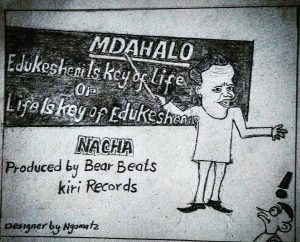 MDAHALO
Edukeshen Is key of Life
Or
Life Is key of Edukeshen
NACHA
Produced by Bear Beats
kiri Records
Designer by Ngomatz